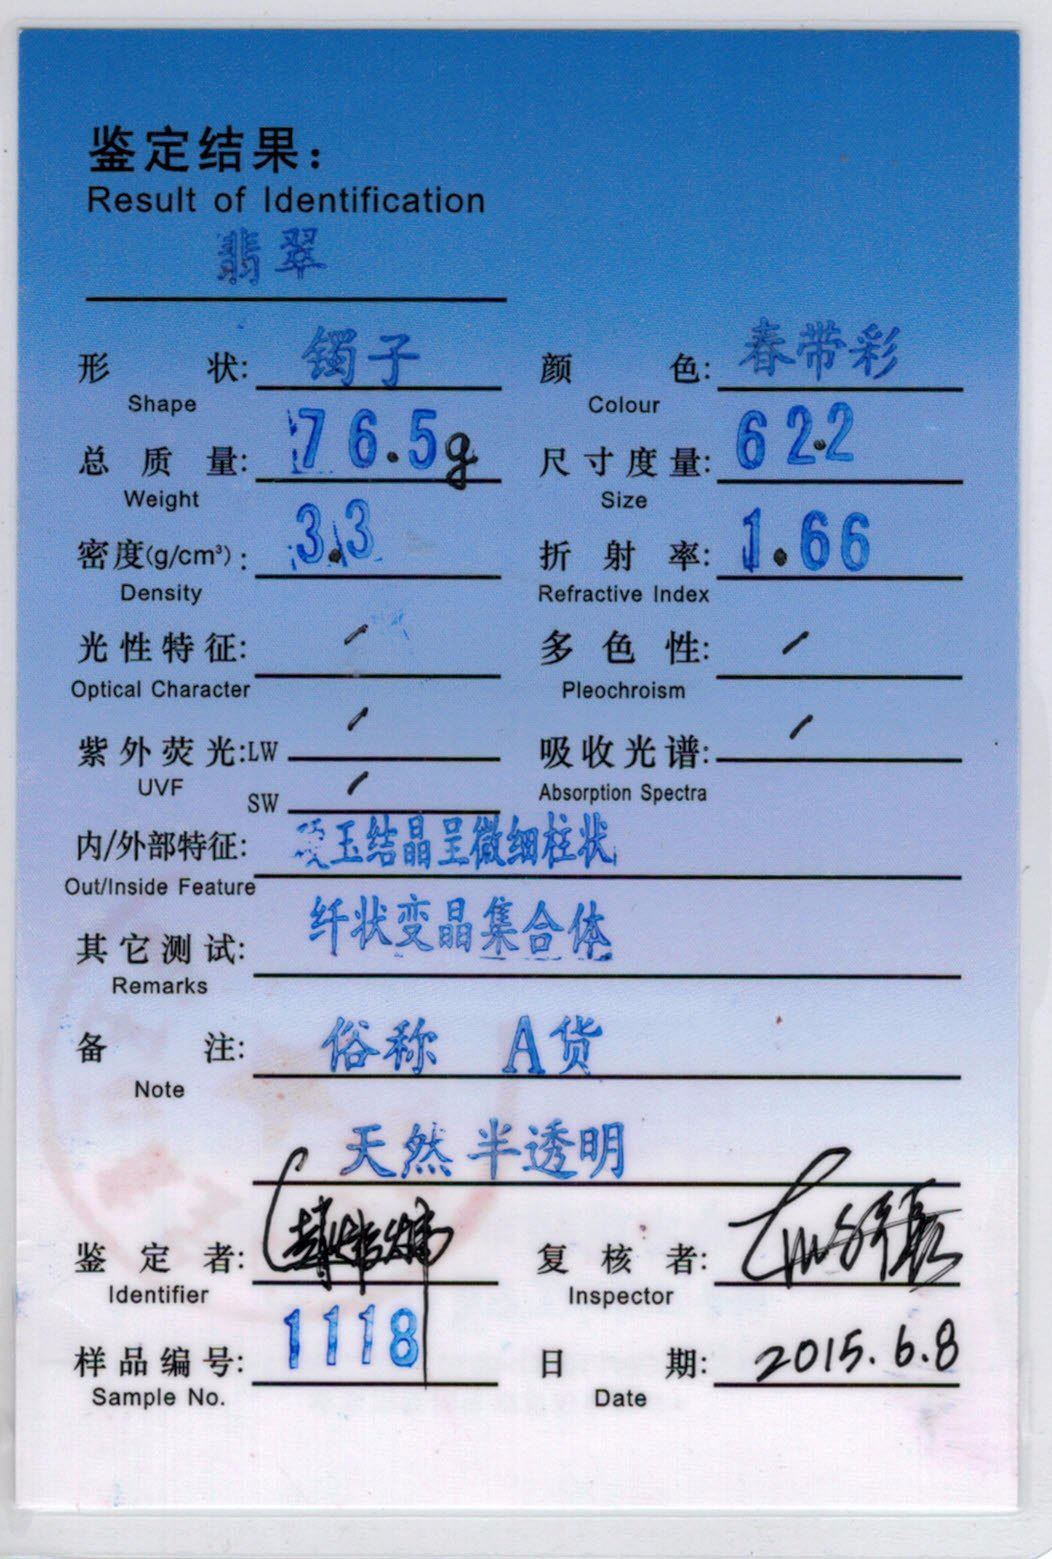 鉴定结果:
Result of Identification
翡翠
形状: 镯子 颜色: 春带彩
Shape Colour
总质量: 76.5g 尺寸度量: 62.2
Weight Size
密度(g/cm³): 3.3 折射率: 1.66
Density Refractive Index
光性特征: / 多色性: /
Optical Character Pleochroism
紫外荧光:LW / 吸收光谱: /
UVF SW / Absorption Spectra
内/外部特征: 硬玉结晶呈微细柱状
Out/Inside Feature
其它测试: 纤状变晶集合体
Remarks
备注: 俗称 A货
Note
天然半透明
鉴定者: 复核者:
Identifier Inspector
样品编号: 1118 日期: 2015.6.8
Sample No. Date